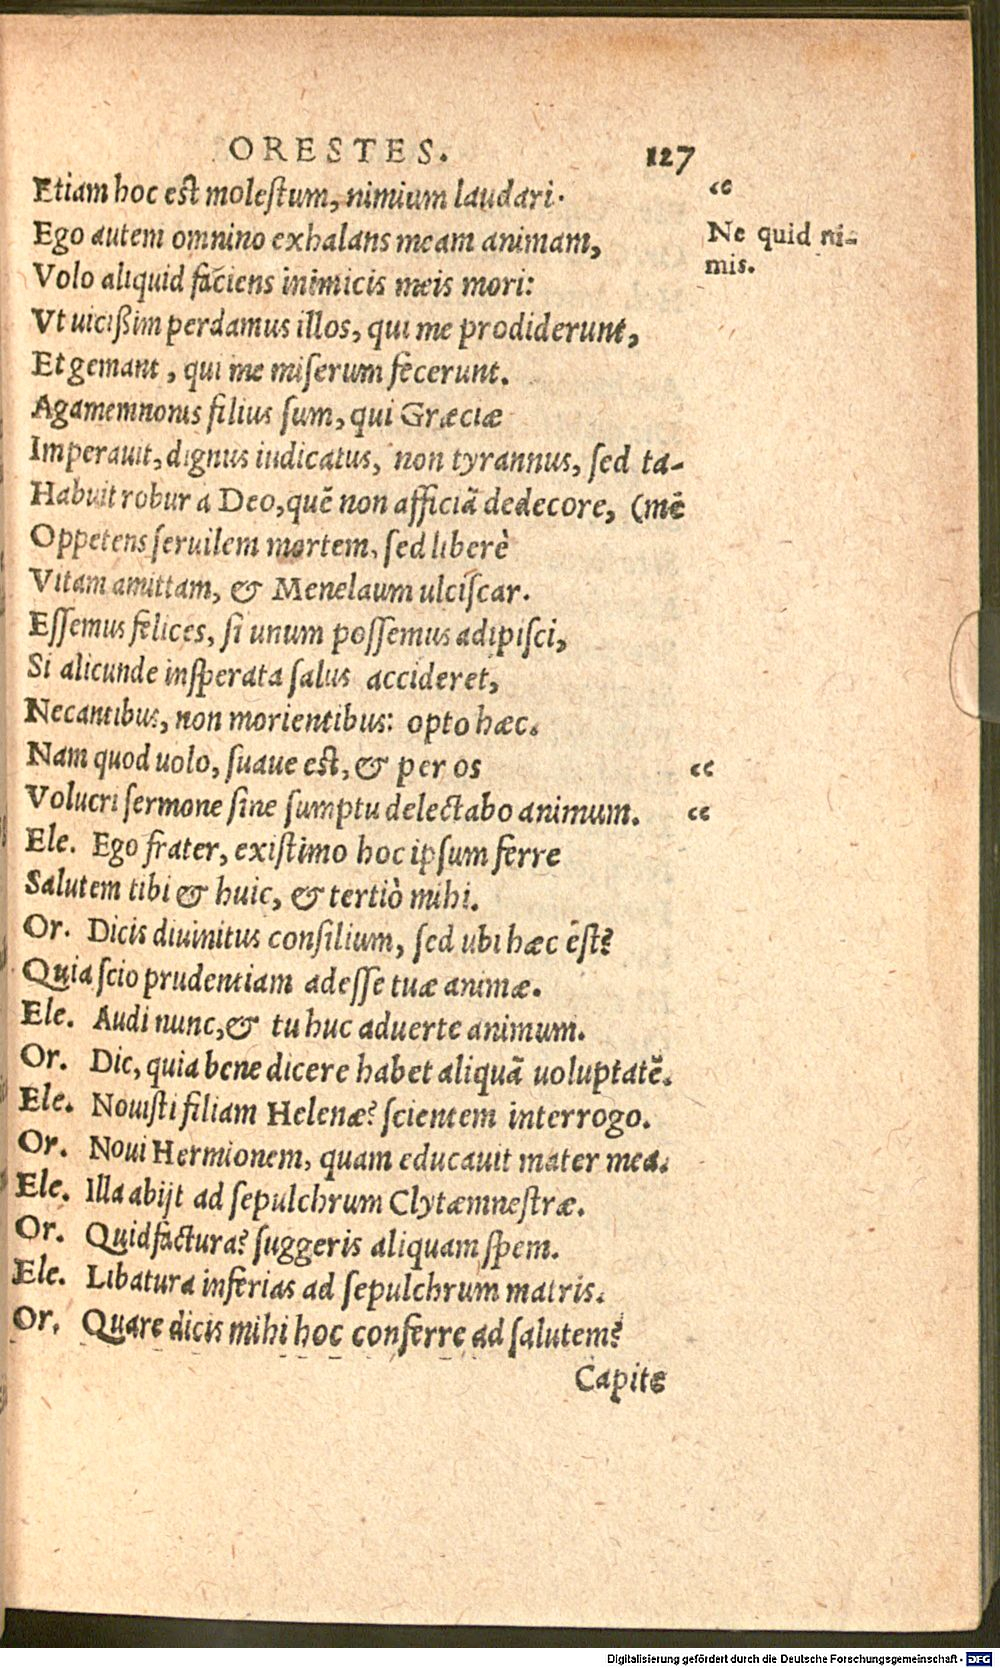 ORESTES. 127
Etiam hoc est molestum, nimium laudari. “
Ego autem omnino exhalans meam animam, Ne quid ni-
Volo aliquid faciens inimicis meis mori: mis.
Vt uicißim perdamus illos, qui me prodiderunt,
Et gemant, qui me miserum fecerunt.
Agamemnonis filius sum, qui Græciæ
Imperauit, dignus iudicatus, non tyrannus, sed ta-
Habuit robur a Deo, quē non afficiā dedecore, (mē
Oppetens seruilem mortem, sed liberè
Vitam amittam, & Menelaum ulciscar.
Essemus felices, si unum possemus adipisci,
Si alicunde insperata salus accideret,
Necantibus, non morientibus: opto hæc.
Nam quod uolo, suaue est, & per os “
Volucri sermone sine sumptu delectabo animum. “
Ele. Ego frater, existimo hoc ipsum ferre
Salutem tibi & huic, & tertiò mihi.
Or. Dicis diuinitus consilium, sed ubi hæc est?
Quia scio prudentiam adesse tuæ animæ.
Ele. Audi nunc, & tu huc aduerte animum.
Or. Dic, quia bene dicere habet aliquā uoluptatē.
Ele. Nouisti filiam Helenæ? scientem interrogo.
Or. Noui Hermionem, quam educauit mater mea.
Ele. Illa abijt ad sepulchrum Clytæmnestræ.
Or. Quid factura? suggeris aliquam spem.
Ele. Libatura inferias ad sepulchrum matris.
Or. Quare dicis mihi hoc conferre ad salutem?
Capite
Digitalisierung gefördert durch die Deutsche Forschungsgemeinschaft - DFG